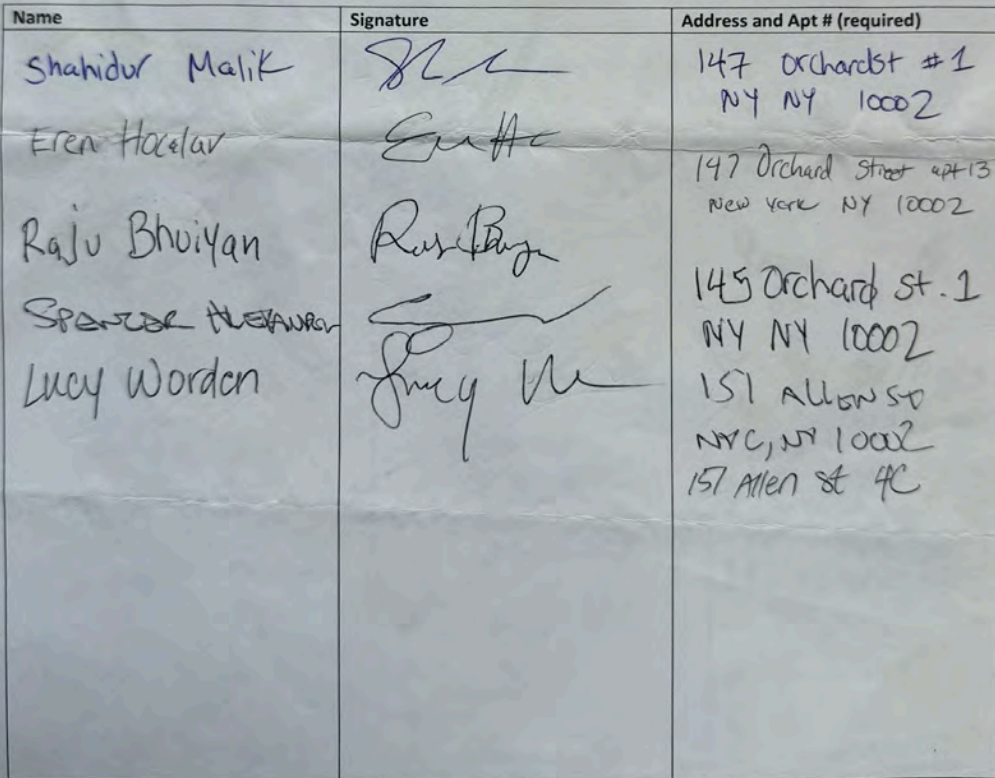 Name Signature Address and Apt # (required)
Shahidur Malik 147 Orchardst #1
NY NY 10002
Eren Hocalar
147 Orchard Street apt 13
New York NY 10002
Raju Bhuiyan
145 Orchard St. 1
NY NY 10002
SPENCER ALEXANDER
Lucy Worden Lucy
151 ALLEN ST
NYC, NY 10002
151 Allen St 4C